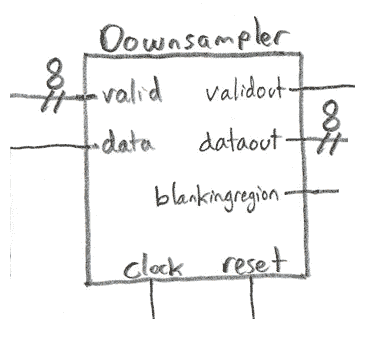 Downsampler
8
valid
validout
8
data
dataout
blankingregion
clock
reset